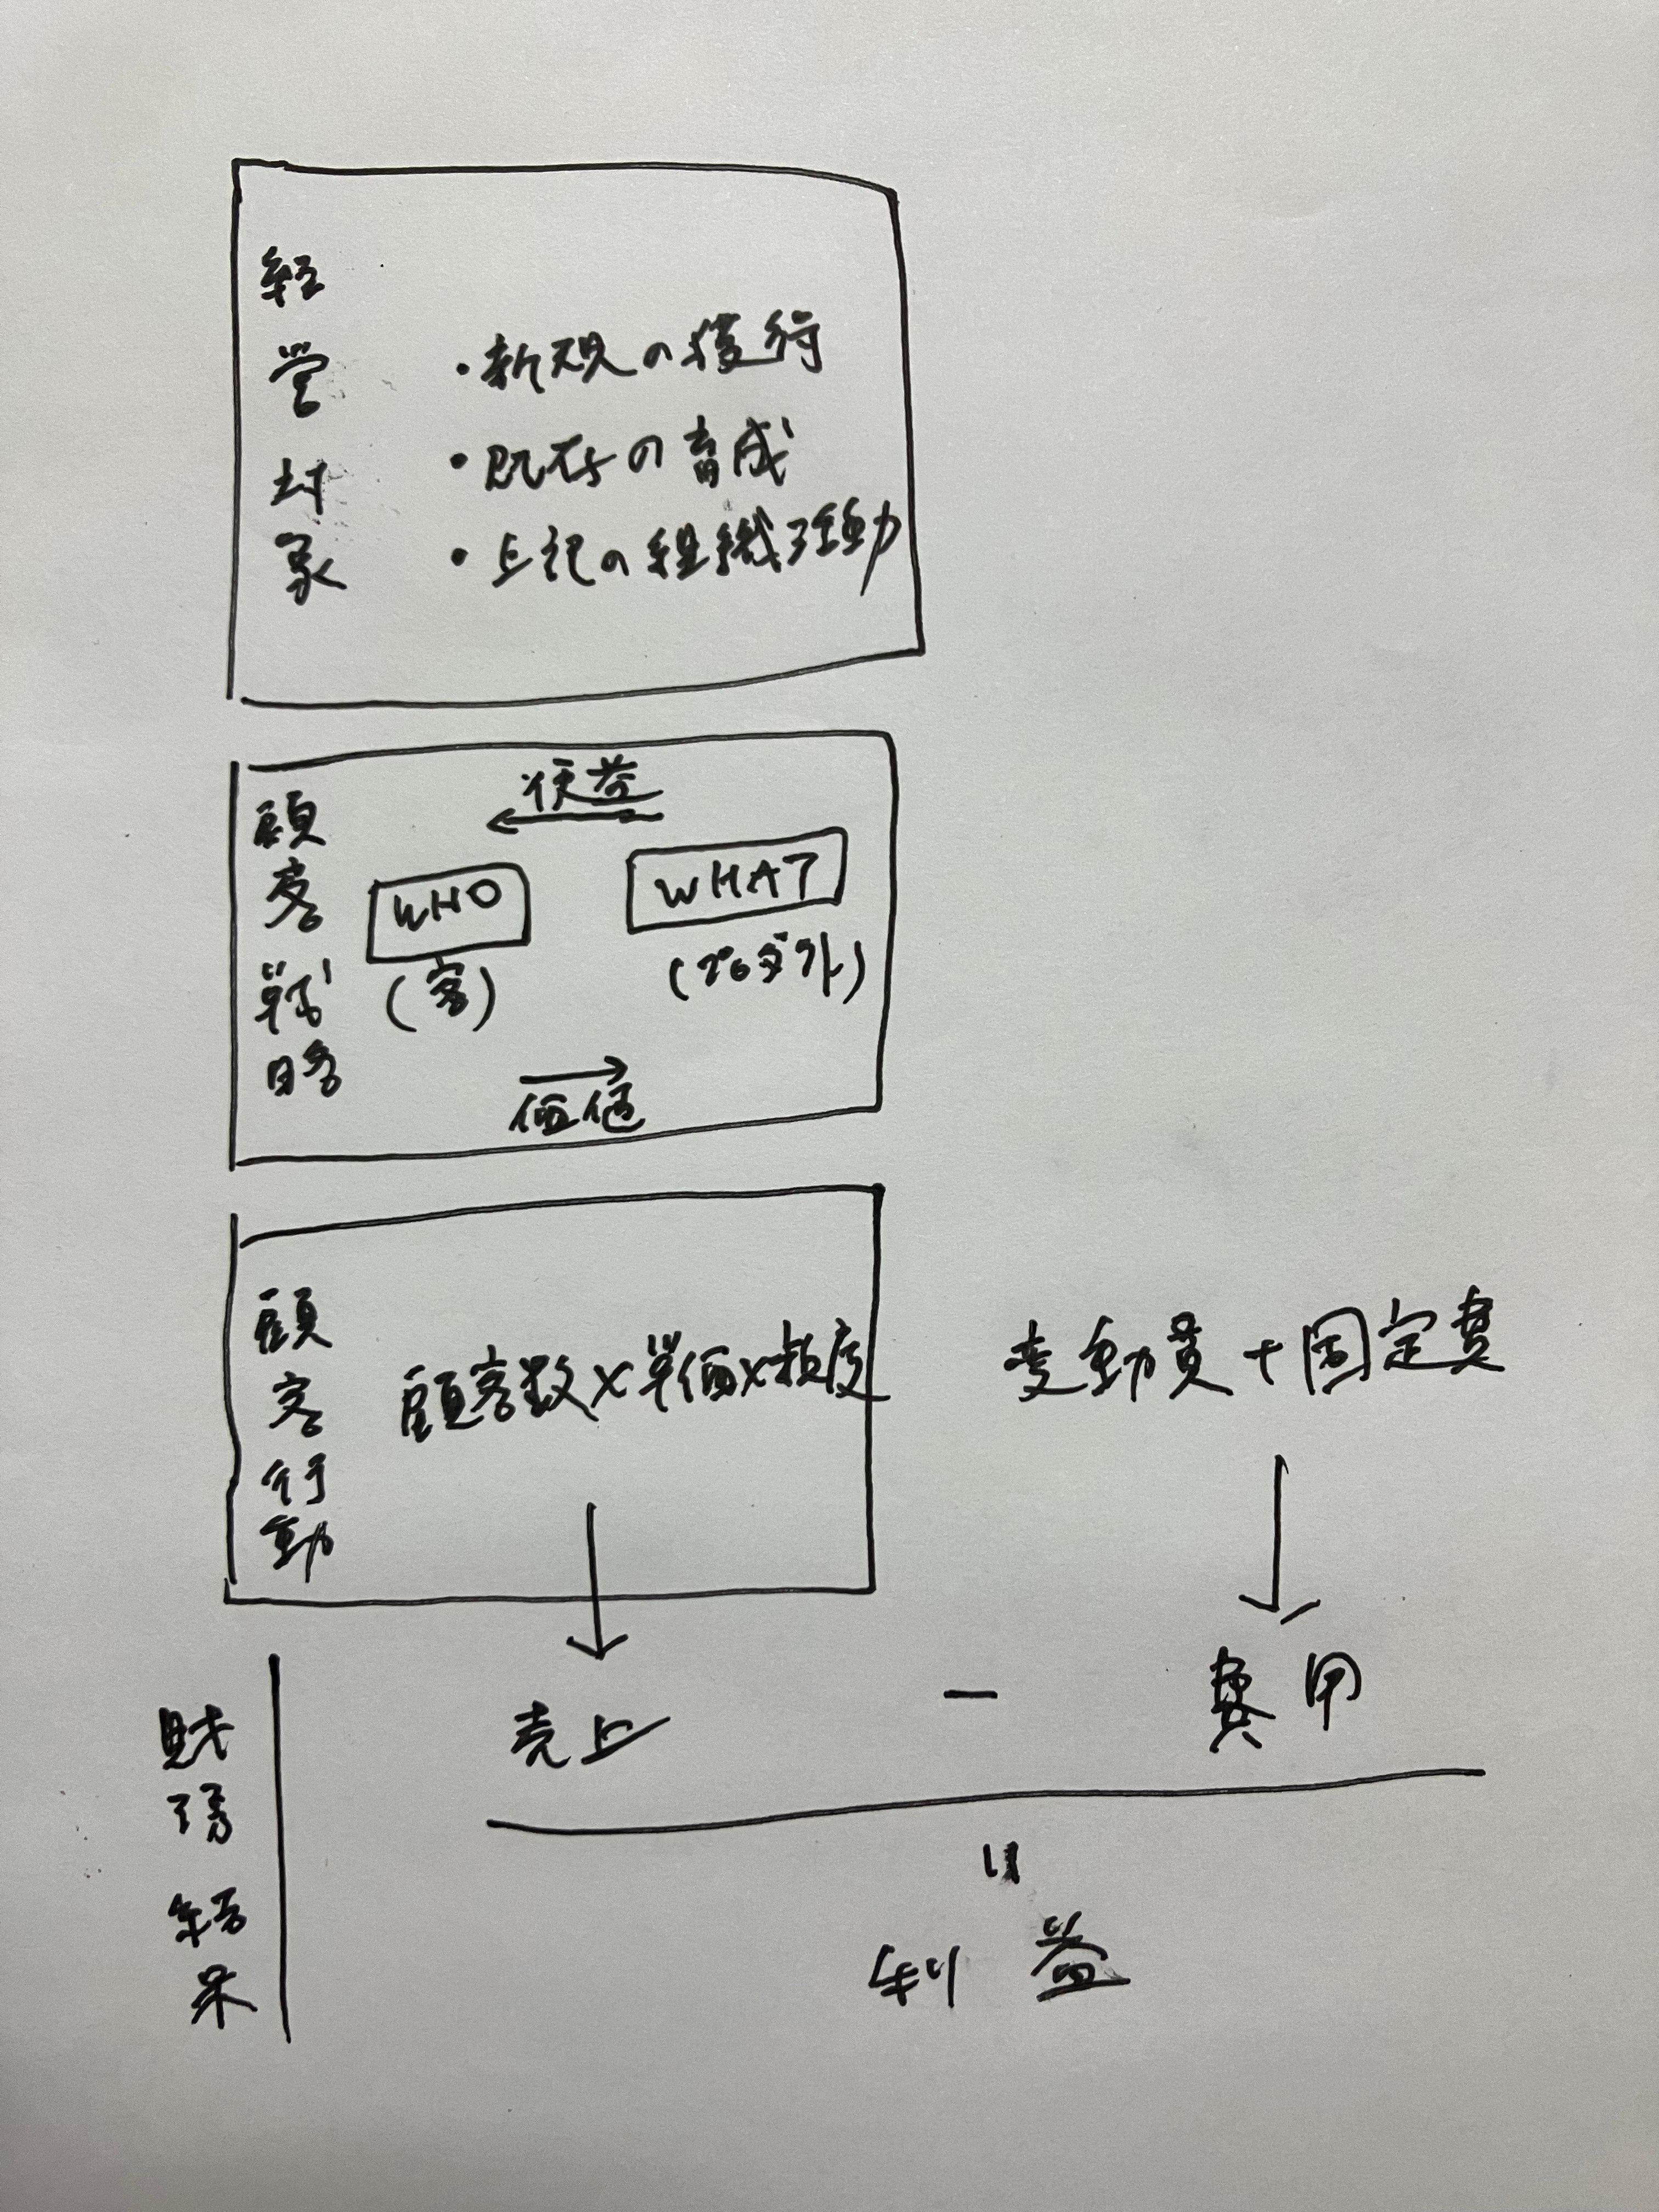 経営対象
・新規の獲得
・既存の育成
・上記の組織活動
顧客戦略
便益
WHO
WHAT
(客)
(プロダクト)
価値
顧客行動
顧客数×単価×頻度
変動費+固定費
財務結果
売上
－
費用
利益